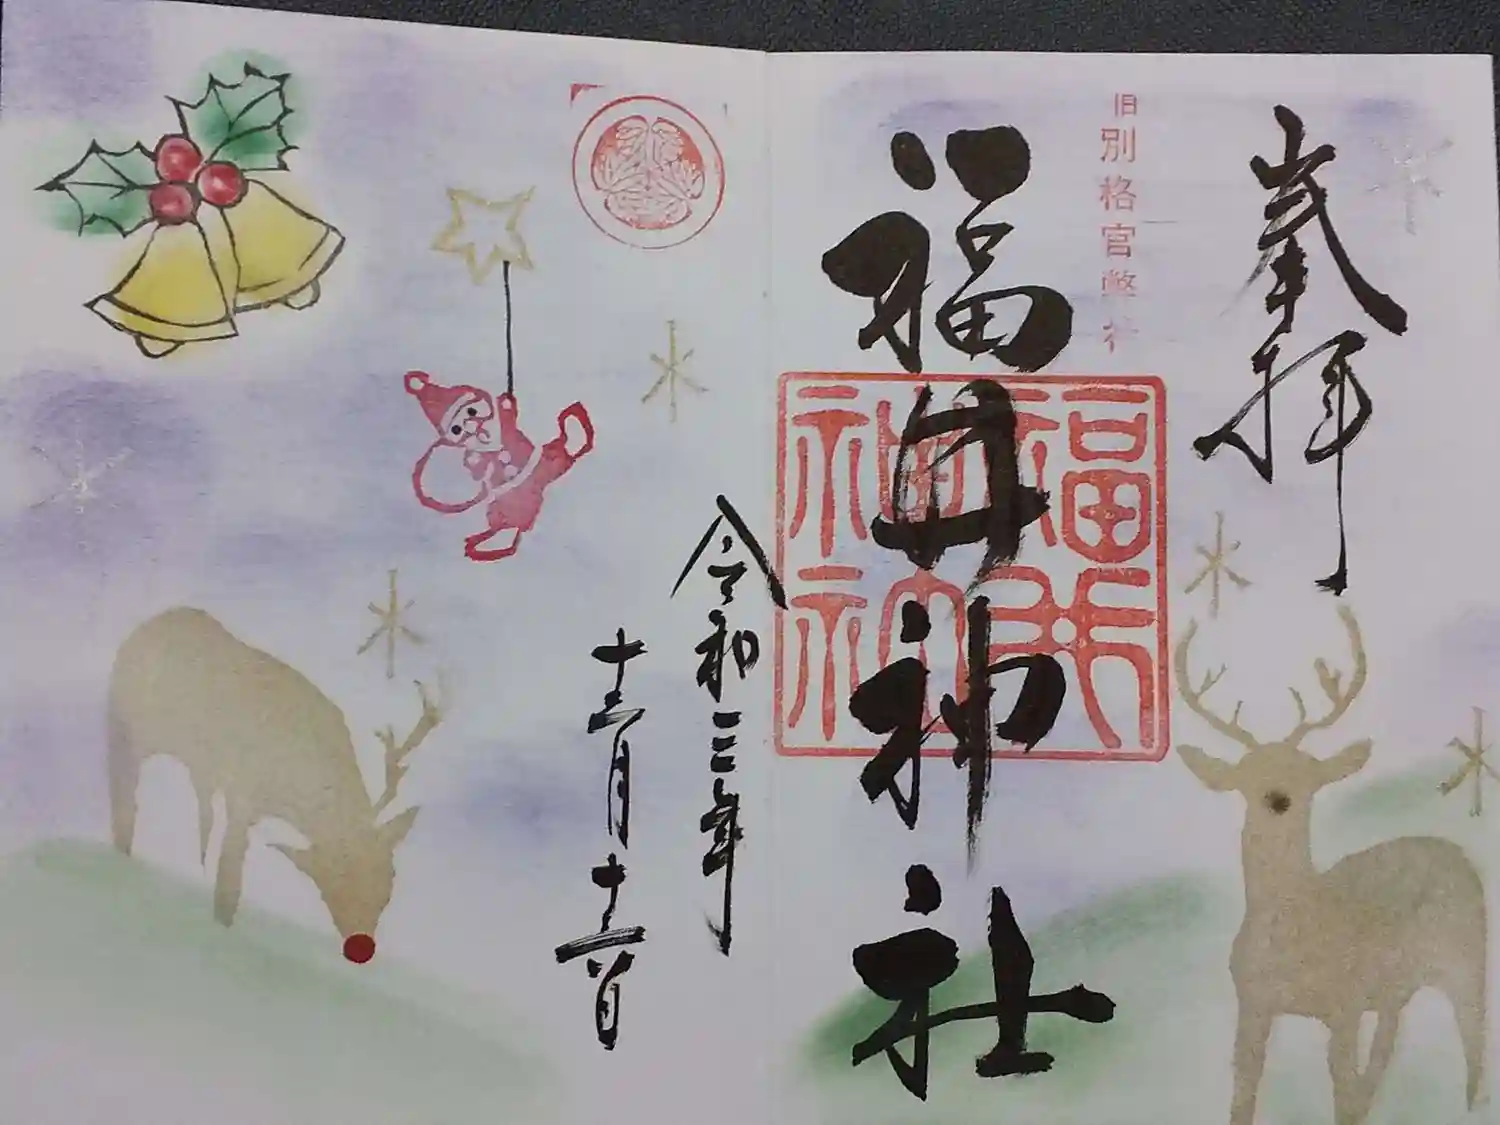 奉拝
旧別格官幣社
福井神社
福井神社
令和三年
十二月十六日